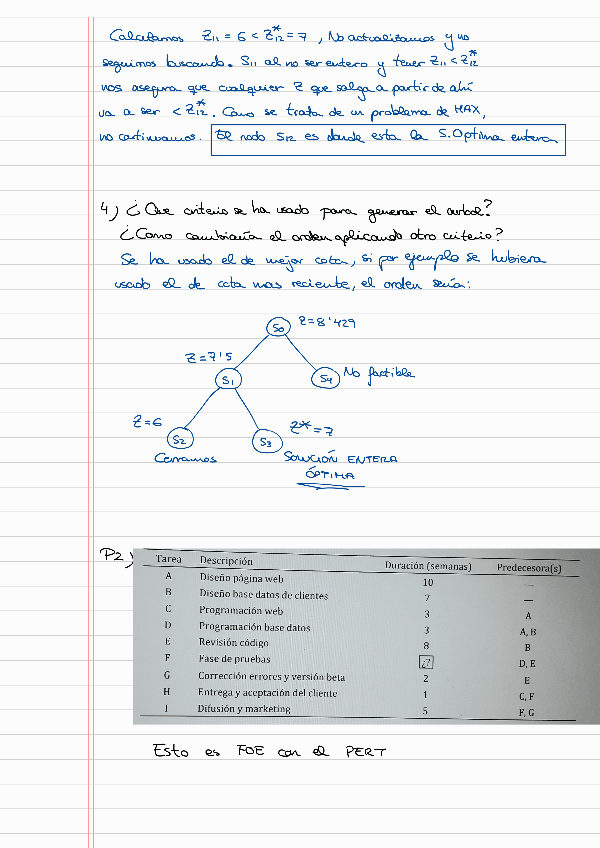 Calculamos Z11 = 6 < Z*12 = 7, No actualizamos y no
seguimos buscando. S11 al no ser entero y tener Z11 < Z*12
nos asegura que cualquier Z que salga a partir de ahí
va a ser < Z*12. Como se trata de un problema de MAX,
no continuamos. El nodo S12 es donde esta la S.Optima entera
4) ¿Que criterio se ha usado para generar el arbol?
¿Como cambiaría el orden aplicando otro criterio?
Se ha usado el de mejor cota, si por ejemplo se hubiera
usado el de cota mas reciente, el orden sería:
S0 Z=8'429
Z=7'5
S1 S4 No factible
Z=6 Z*=7
S2 S3
Cerramos SOLUCIÓN ENTERA
ÓPTIMA
P2)
Tarea Descripción Duración (semanas) Predecesora(s)
A Diseño página web 10 —
B Diseño base datos de clientes 7 —
C Programación web 3 A
D Programación base datos 3 A, B
E Revisión código 8 B
F Fase de pruebas ¿? D, E
G Corrección errores y versión beta 2 E
H Entrega y aceptación del cliente 1 C, F
I Difusión y marketing 5 F, G
Esto es FOE con el PERT